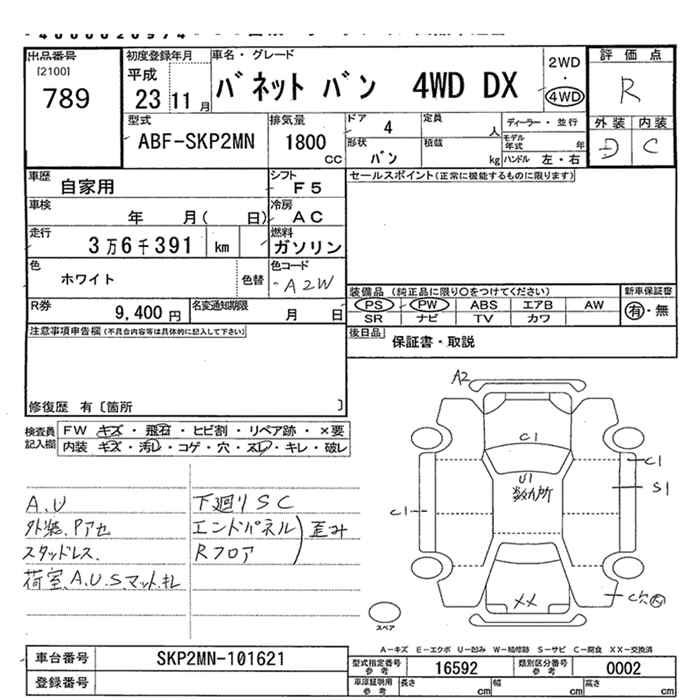 出品番号
[2100]
789
初度登録年月
平成
23 11 月
車名・グレード
バネット バン 4WD DX
2WD
・
4WD
評価点
R
外装 内装
D C
型式
ABF-SKP2MN
排気量
1800
CC
ドア
4
定員
人
ディーラー・並行
形状
バン
積載
kg
モデル年式
年
ハンドル 左・右
車歴
自家用
シフト
F5
セールスポイント(正常に機能するものに限ります)
車検
年 月( 日)
冷房
AC
走行
3万6千391 km
燃料
ガソリン
色
ホワイト
色替
色コード
A2W
装備品 (純正品に限り〇をつけてください)
新車保証書
PS PW ABS エアB AW
有・無
SR ナビ TV カワ
R券
9,400 円
名変通知期限
月 日
後日品
保証書・取説
注意事項申告欄(不具合内容等は具体的に記入して下さい)
修復歴 有〔箇所 〕
検査員記入欄
FW キズ・飛石・ヒビ割・リペア跡・×要
内装 キズ・汚レ・コゲ・穴・スレ・キレ・破レ
A2
C1
U1
数ヵ所
C1
C1
S1
XX
C穴
A.U
外装.Pアセ
スタッドレス.
荷室.A.U.S.マットキレ
下廻りSC
エンドパネル
Rフロア
歪み
スペア
A-キズ E-エクボ U-凹み W-補修跡 S-サビ C-腐食 XX-交換済
車台番号
SKP2MN-101621
登録番号
型式指定番号
参考
16592
類別区分番号
参考
0002
車庫証明用
参考
長さ
cm
幅
cm
高さ
cm